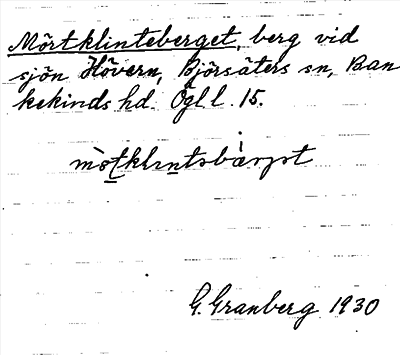 Mörtklinteberget, berg vid
sjön Hövern, Björsäters sn, Ban
kekinds hd. Ögl l. 15.
G. Granberg 1930